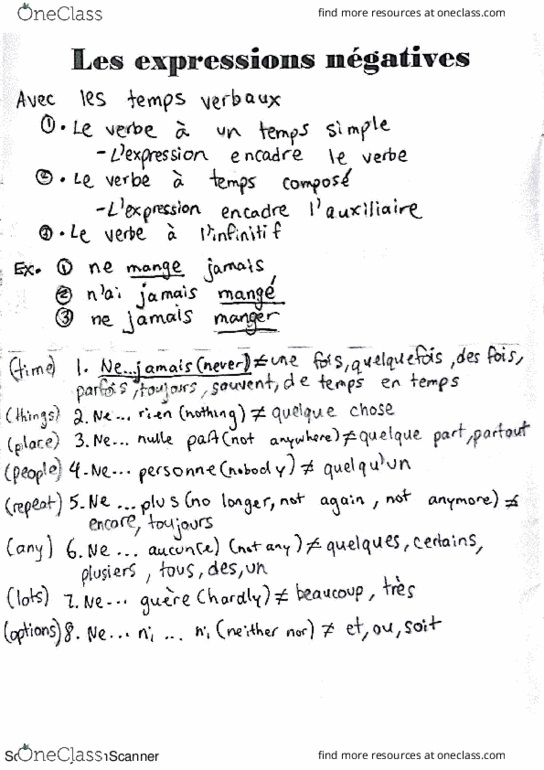 OneClass
find more resources at oneclass.com
Les expressions négatives
Avec les temps verbaux
① • Le verbe à un temps simple
- L'expression encadre le verbe
② • Le verbe à temps composé
- L'expression encadre l'auxiliaire
③ • Le verbe à l'infinitif
Ex. ① ne mange jamais
② n'ai jamais mangé
③ ne jamais manger
(time) 1. Ne...jamais (never) ≠ une fois, quelquefois, des fois,
parfois, toujours, souvent, de temps en temps
(things) 2. Ne... rien (nothing) ≠ quelque chose
(place) 3. Ne... nulle part (not anywhere) ≠ quelque part, partout
(people) 4. Ne... personne (nobody) ≠ quelqu'un
(repeat) 5. Ne ... plus (no longer, not again, not anymore) ≠
encore, toujours
(any) 6. Ne ... aucun(e) (not any) ≠ quelques, certains,
plusiers, tous, des, un
(lots) 7. Ne... guère (hardly) ≠ beaucoup, très
(options) 8. Ne... ni ... ni (neither nor) ≠ et, ou, soit
OneClass
Scanner
find more resources at oneclass.com